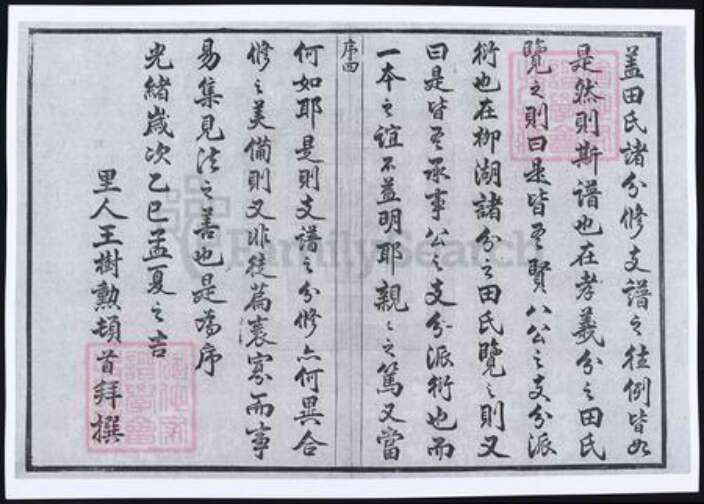 盖田氏諸分修支譜之往例皆如
是然則斯谱也在孝義分之田氏
覽之則曰是皆吾賢八公之支分派
衍也在柳湖諸分之田氏覽之則又
曰是皆吾承事公之支分派衍也而
一本之誼不益明耶親々之篤又當
序四
何如耶是則支譜之分修亦何異合
修之美備則又非徒篇裹寡而事
易集見法之善也是為序
光緒歲次乙巳孟夏之吉
里人王樹勲頓首拜撰
FamilySearch